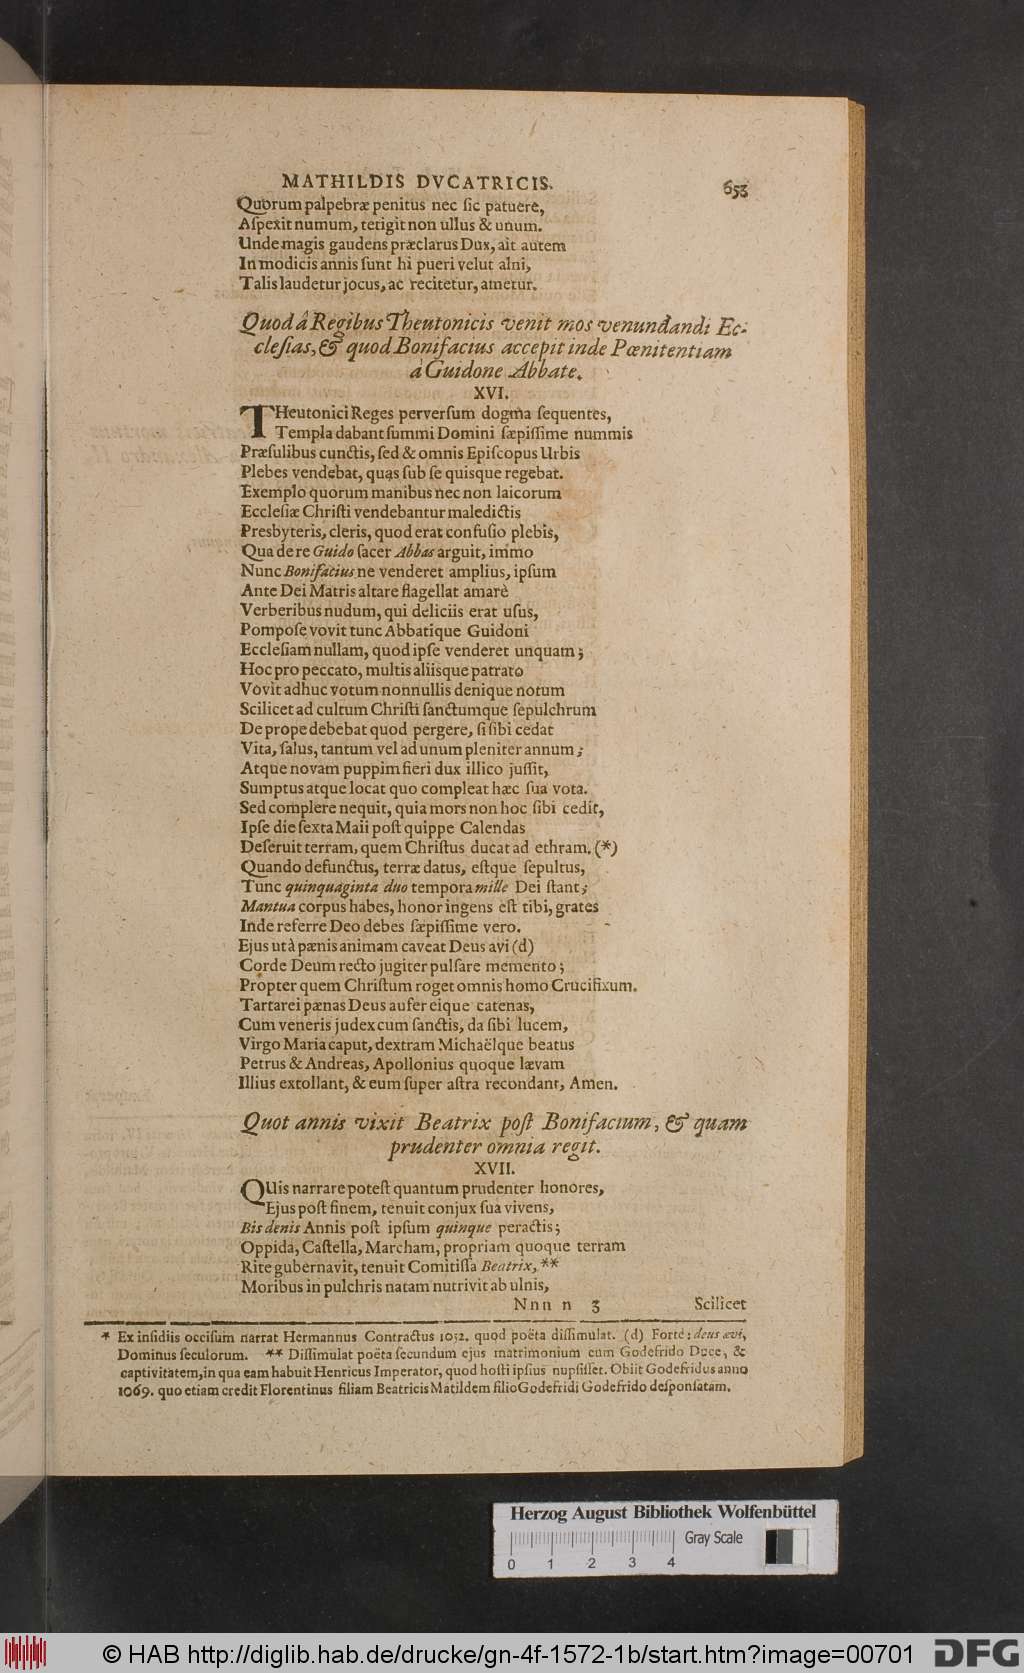 MATHILDIS DVCATRICIS. 653
Quorum palpebræ penitus nec ſic patuere,
Aſpexit numum, tetigit non ullus & unum.
Unde magis gaudens præclarus Dux, ait autem
In modicis annis ſunt hi pueri velut alni,
Talis laudetur jocus, ac recitetur, ametur.
Quod â Regibus Theutonicis venit mos venundandi Ec-
cleſias, & quod Bonifacius accepit inde Pœnitentiam
à Guidone Abbate.
XVI.
THeutonici Reges perverſum dogma ſequentes,
Templa dabant ſummi Domini ſæpiſſime nummis
Præſulibus cunctis, ſed & omnis Epiſcopus Urbis
Plebes vendebat, quas ſub ſe quisque regebat.
Exemplo quorum manibus nec non laicorum
Eccleſiæ Chriſti vendebantur maledictis
Presbyteris, cleris, quod erat confuſio plebis,
Qua de re Guido ſacer Abbas arguit, immo
Nunc Bonifacius ne venderet amplius, ipſum
Ante Dei Matris altare flagellat amarè
Verberibus nudum, qui deliciis erat uſus,
Pompoſe vovit tunc Abbatique Guidoni
Eccleſiam nullam, quod ipſe venderet unquam;
Hoc pro peccato, multis aliisque patrato
Vovit adhuc votum nonnullis denique notum
Scilicet ad cultum Chriſti ſanctumque ſepulchrum
De prope debebat quod pergere, ſi ſibi cedat
Vita, ſalus, tantum vel ad unum pleniter annum;
Atque novam puppim fieri dux illico juſſit,
Sumptus atque locat quo compleat hæc ſua vota.
Sed complere nequit, quia mors non hoc ſibi cedit,
Ipſe die ſexta Maii poſt quippe Calendas
Deſeruit terram, quem Chriſtus ducat ad ethram. (*)
Quando defunctus, terræ datus, eſtque ſepultus,
Tunc quinquaginta duo tempora mille Dei ſtant;
Mantua corpus habes, honor ingens eſt tibi, grates
Inde referre Deo debes ſæpiſſime vero.
Ejus ut à pænis animam caveat Deus avi (d)
Corde Deum recto jugiter pulſare memento;
Propter quem Chriſtum roget omnis homo Crucifixum.
Tartarei pænas Deus aufer eique catenas,
Cum veneris judex cum ſanctis, da ſibi lucem,
Virgo Maria caput, dextram Michaëlque beatus
Petrus & Andreas, Apollonius quoque lævam
Illius extollant, & eum ſuper aſtra recondant, Amen.
Quot annis vixit Beatrix poſt Bonifacium, & quam
prudenter omnia regit.
XVII.
QUis narrare poteſt quantum prudenter honores,
Ejus poſt finem, tenuit conjux ſua vivens,
Bis denis Annis poſt ipſum quinque peractis;
Oppida, Caſtella, Marcham, propriam quoque terram
Rite gubernavit, tenuit Comitiſſa Beatrix, **
Moribus in pulchris natam nutrivit ab ulnis,
Nnn n 3 Scilicet
* Ex inſidiis occiſum narrat Hermannus Contractus 1052. quod poëta diſſimulat. (d) Fortè: deus ævi,
Dominus ſeculorum. ** Diſſimulat poëta ſecundum ejus matrimonium cum Godefrido Duce, &
captivitatem, in qua eam habuit Henricus Imperator, quod hoſti ipſius nupſiſſet. Obiit Godefridus anno
1069. quo etiam credit Florentinus filiam Beatricis Matildem filio Godefridi Godefrido deſponſatam.
Herzog August Bibliothek Wolfenbüttel
Gray Scale
0 1 2 3 4
© HAB http://diglib.hab.de/drucke/gn-4f-1572-1b/start.htm?image=00701 DFG